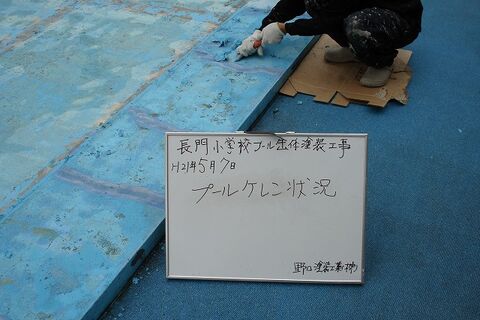 長門小学校プール全体塗装工事
H21年5月7日
プールケレン状況
野口塗装工業(有)